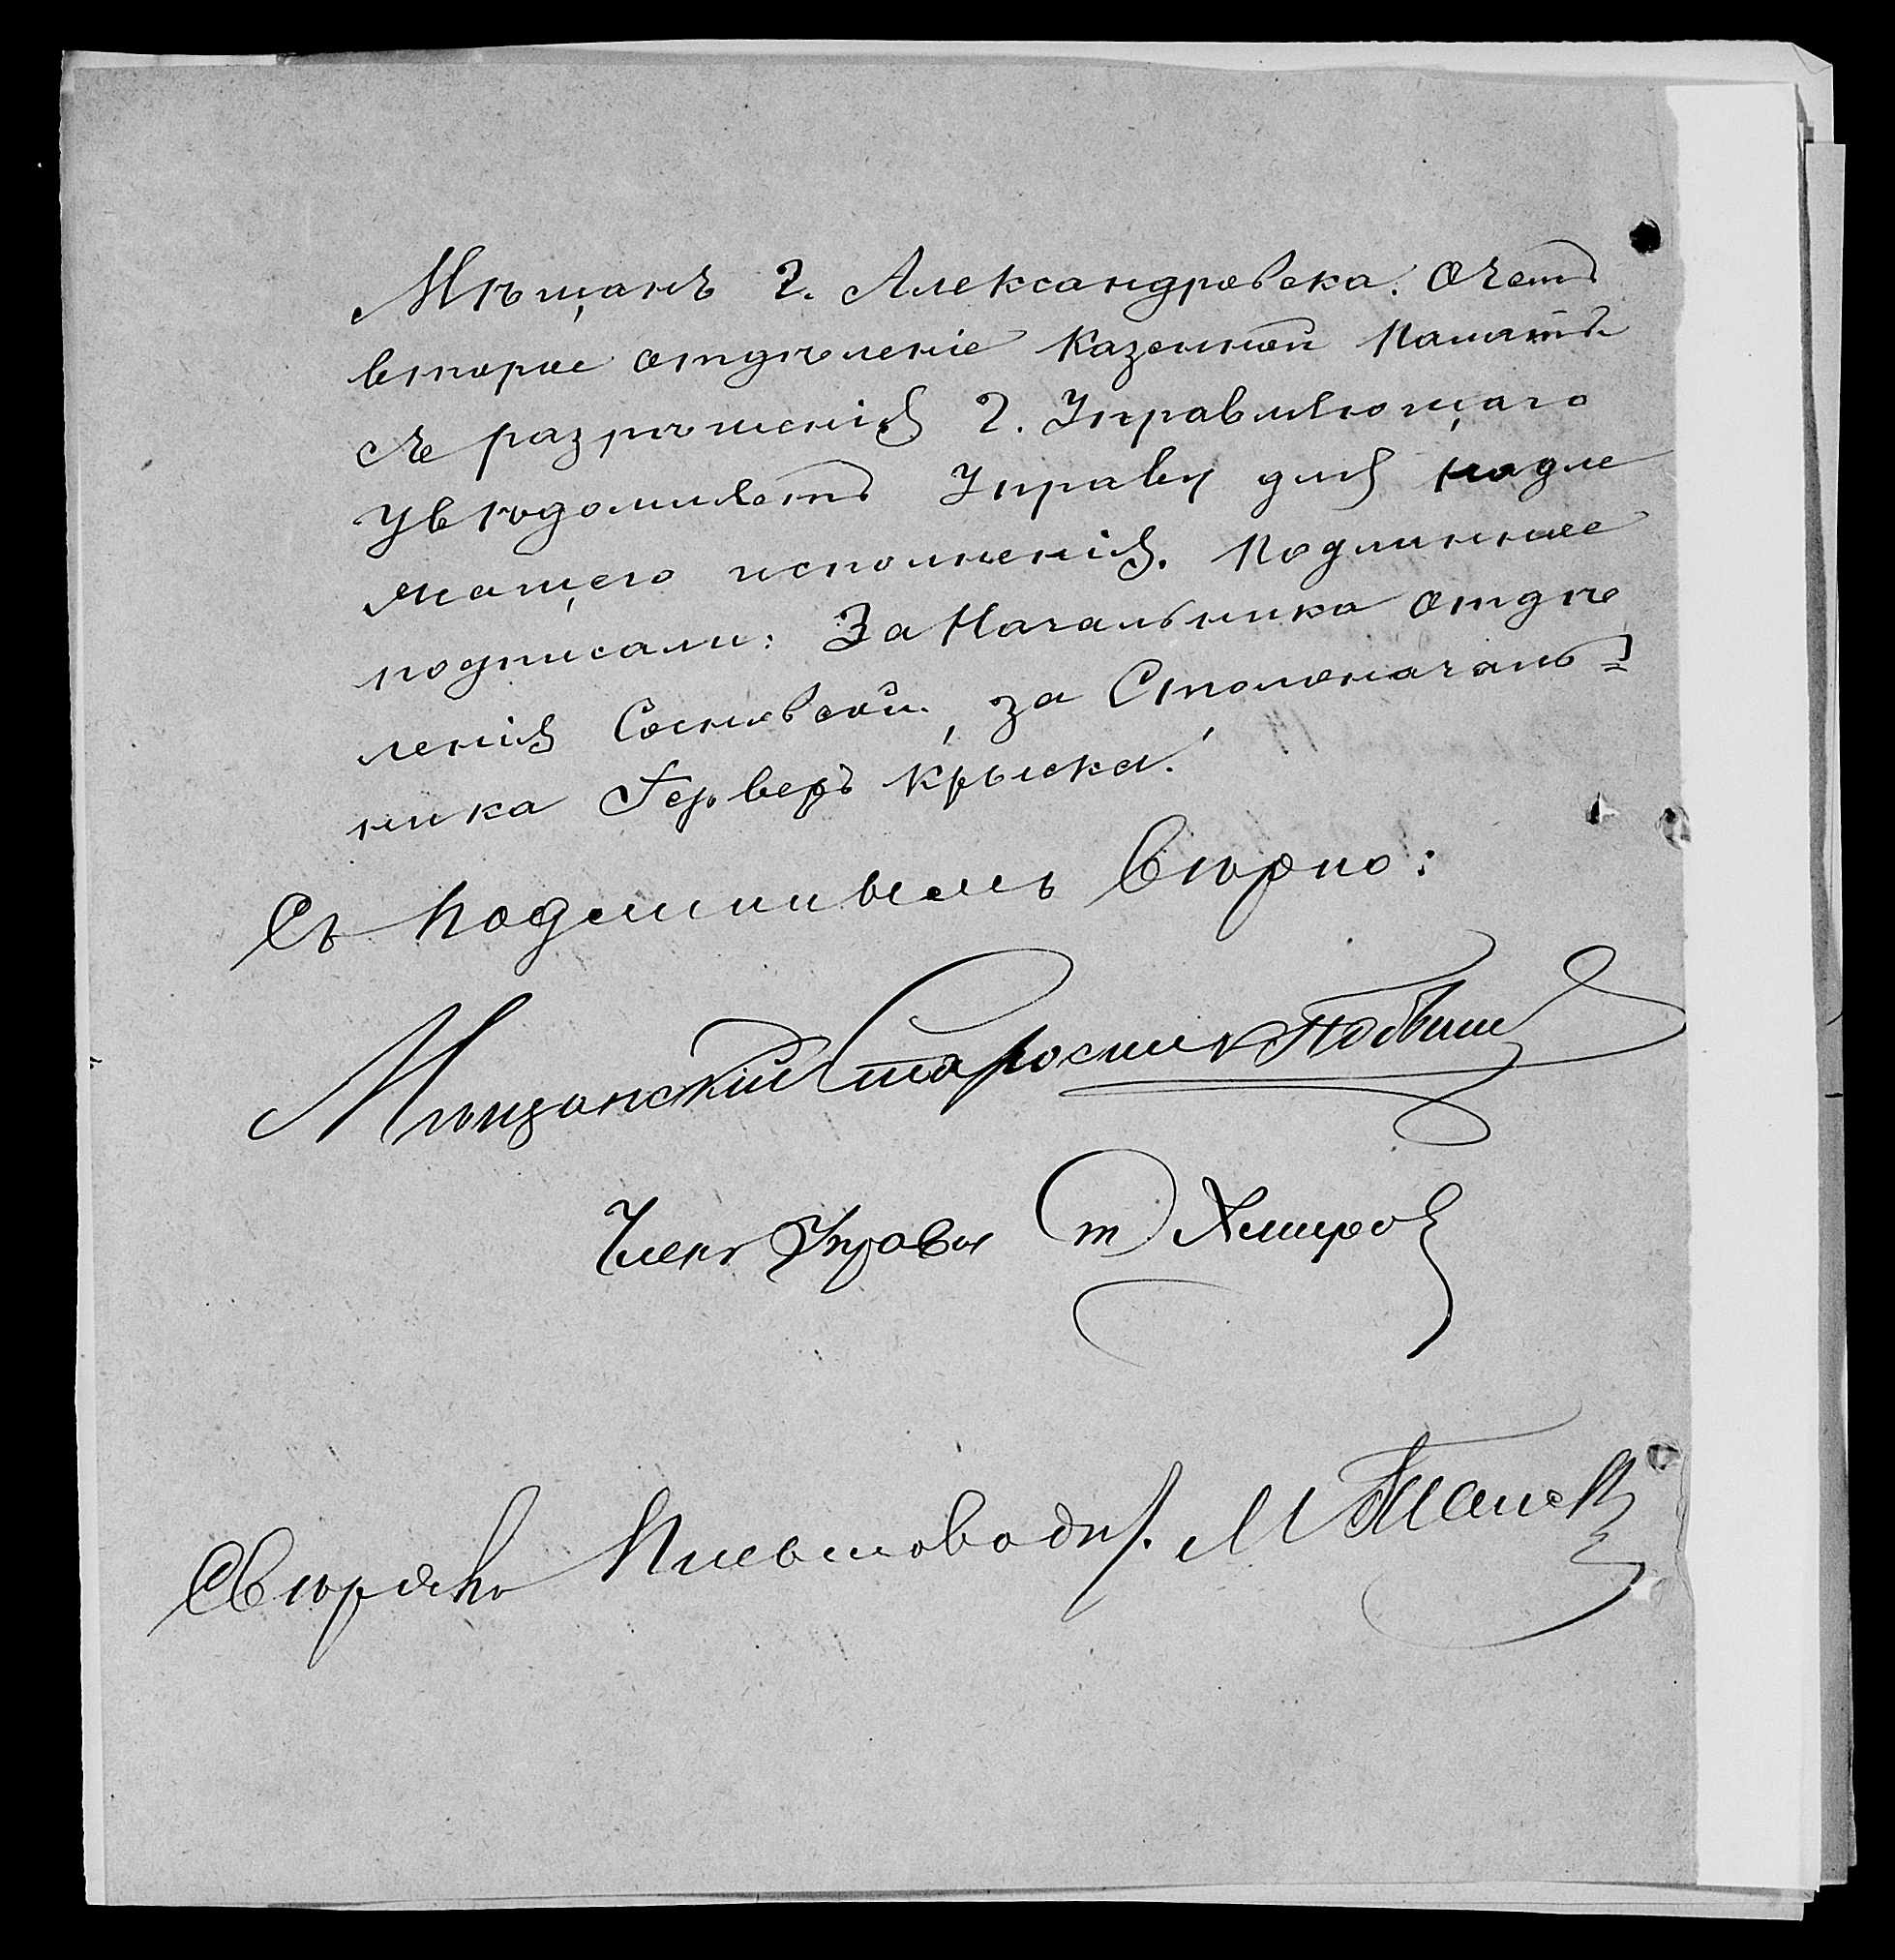 Мѣщанъ г. Александровска. О чемъ
второе отдѣленіе Казенной Палаты
съ разрѣшенія г. Управляющаго
увѣдомляетъ Управу для надле
жащего исполненія. Подлинное
подписали: За Начальника отдѣ
ленія Сосновскій, за Столоначаль=
ника Герверъ Крыска.
Съ подлиннымъ вѣрно:
Мѣщанскій Староста
Членъ Управы
Свѣрялъ Письмовод.